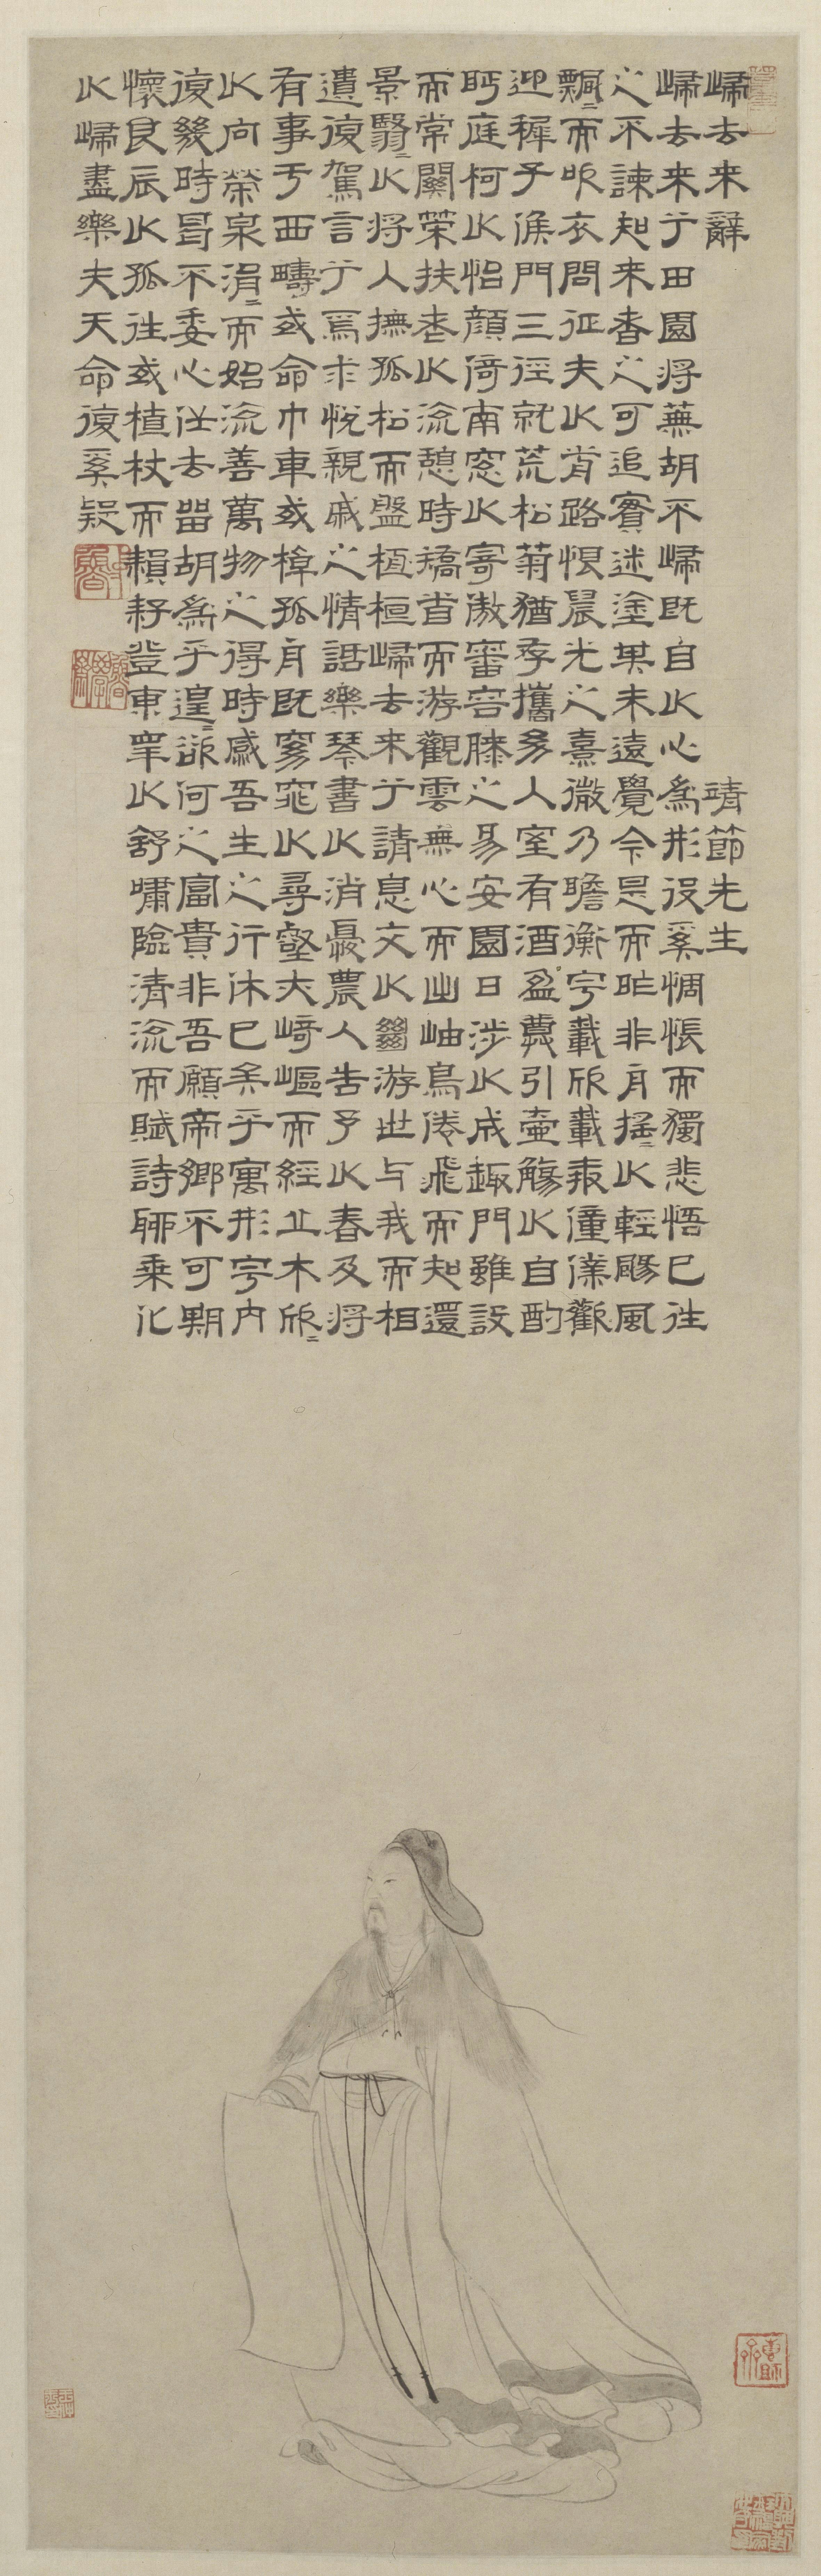 歸去来辭　靖節先生
歸去来兮田園將蕪胡不歸既自以心為形役奚惆悵而獨悲悟已往
之不諫知来者之可追實迷塗其未遠覺今是而昨非舟搖〻以輕颺風
飄〻而吹衣問征夫以前路恨晨光之熹微乃瞻衡宇載欣載奔僮僕歡
迎稚子候門三徑就荒松菊猶存攜幼入室有酒盈樽引壺觴以自酌
眄庭柯以怡顏倚南窓以寄傲審容膝之易安園日涉以成趣門雖設
而常關策扶老以流憩時矯首而游觀雲無心而出岫鳥倦飛而知還
景翳〻以將入撫孤松而盤桓歸去来兮請息交以絕游世与我而相
遺復駕言兮焉求悅親戚之情話樂琴書以消憂農人告予以春及將
有事于西疇或命巾車或棹孤舟既窈窕以尋壑亦崎嶇而經丘木欣〻
以向榮泉涓〻而始流善萬物之得時感吾生之行休已矣乎寓形宇内
復幾時曷不委心任去留胡為乎遑〻欲何之富貴非吾願帝鄉不可期
懷良辰以孤往或植杖而耘耔登東皋以舒嘯臨清流而賦詩聊乘化
以歸盡樂夫天命復奚疑